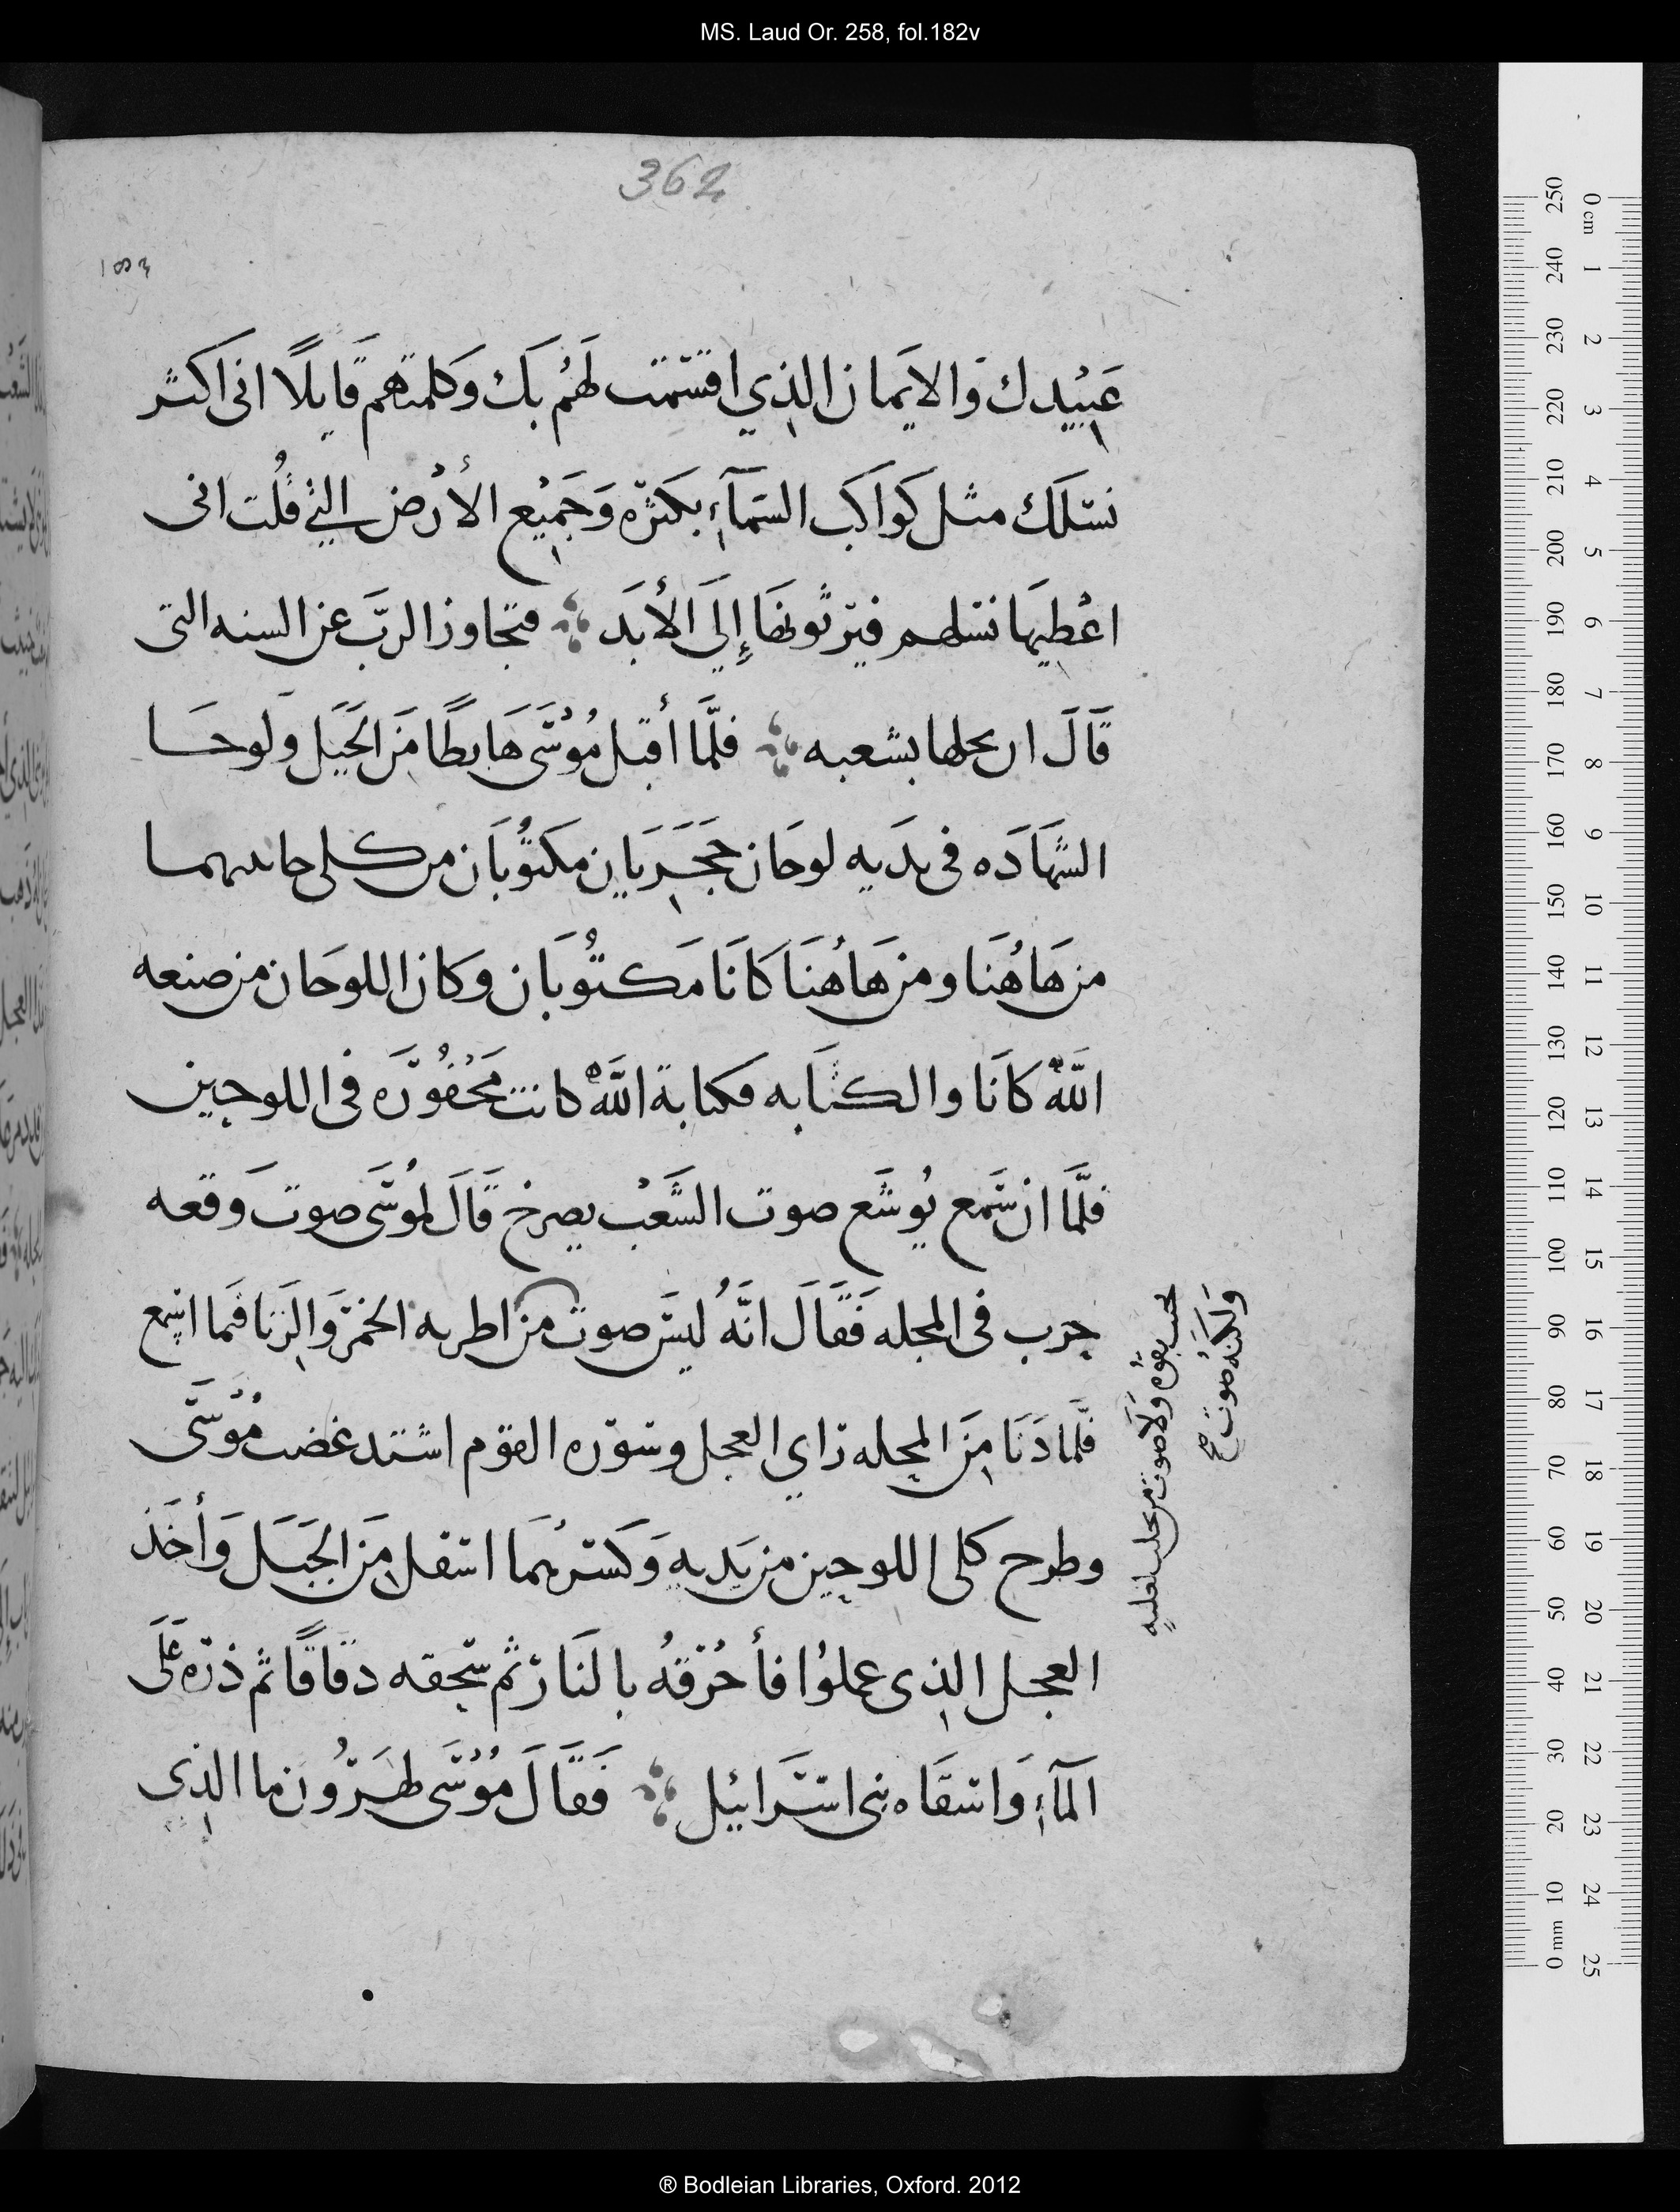 MS. Laud Or. 258, fol.182v
362
عَبِيْدك وَالايَمان الذي اقسَمت لهُم بَك وَكلمتهم قايلًا انى اكثر
نسَلَك مثل كَواكَب السَمآء بكَثرَه وَجَمِيْع الأرْض التي قُلت انى
اعْطيهَا نسَلهم فيَرثونهَا إِلَى الأبَد فتجاوز الربَّ عن السنه التى
قَالَ ان يحلها بشعبه فلمَّا أقبل مُوْسَى هَابطًا مَن الجَبَل وَلوحَا
الشَهَادَه فى يدَيه لوحَان حَجَريَان مكتُوبَان من كلى جانبيهما
من هَاهُنَا ومن هَاهُنَا كانَا مَكتُوبَان وكان اللوحَان من صنعه
اللَّه كانَا والكتَابه فكتابة اللَّه كانت مَحْفُورَه فى اللوحين
فلمَّا ان سَمع يُوشَع صوت الشَعْب يصرخ قَالَ لمُوسَى صوت وَقعه
حرب فى المحله فَقَالَ انَّهُ ليسَ صوت من اطربه الخمَر وَالزنَا فَما اسمع
فلمَّا دَنَا مِنَ المحله راي العجل وسوره القوم اشتد غضب مُوْسَى
وطرح كلى اللوحين من يَديه وَكَسَرهُمَا اسفل مِنَ الجَبَل وَأخَذ
العجل الذى عملوُا فأحْرَقهُ بالنَار ثم سَحقه دقاقًا ثم ذرَه عَلَى
المآء وَاسقَاه بنى اسَرائيل فَقَالَ مُوْسَى لهَرُون ما الذى
بقوه وَلَا صوت من
وَلكنهُ صوت صح
® Bodleian Libraries, Oxford. 2012